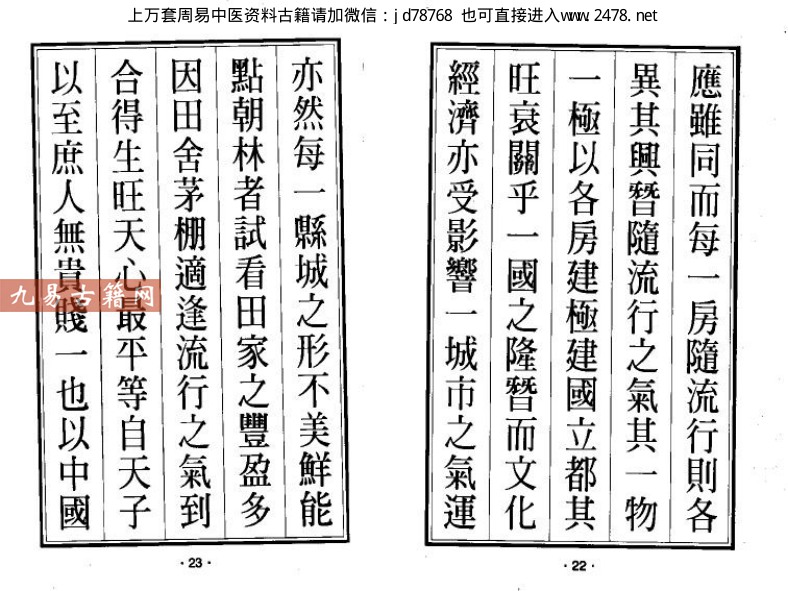 上万套周易中医资料古籍请加微信：jd78768 也可直接进入www.2478.net
應雖同而每一房隨流行則各
異其興暜隨流行之氣其一物
一極以各房建極建國立都其
旺衰關乎一國之隆暜而文化
經濟亦受影響一城市之氣運
·22·
亦然每一縣城之形不美鮮能
點朝林者試看田家之豐盈多
因田舍茅棚適逢流行之氣到
合得生旺天心最平等自天子
以至庶人無貴賤一也以中國
·23·
九易古籍网